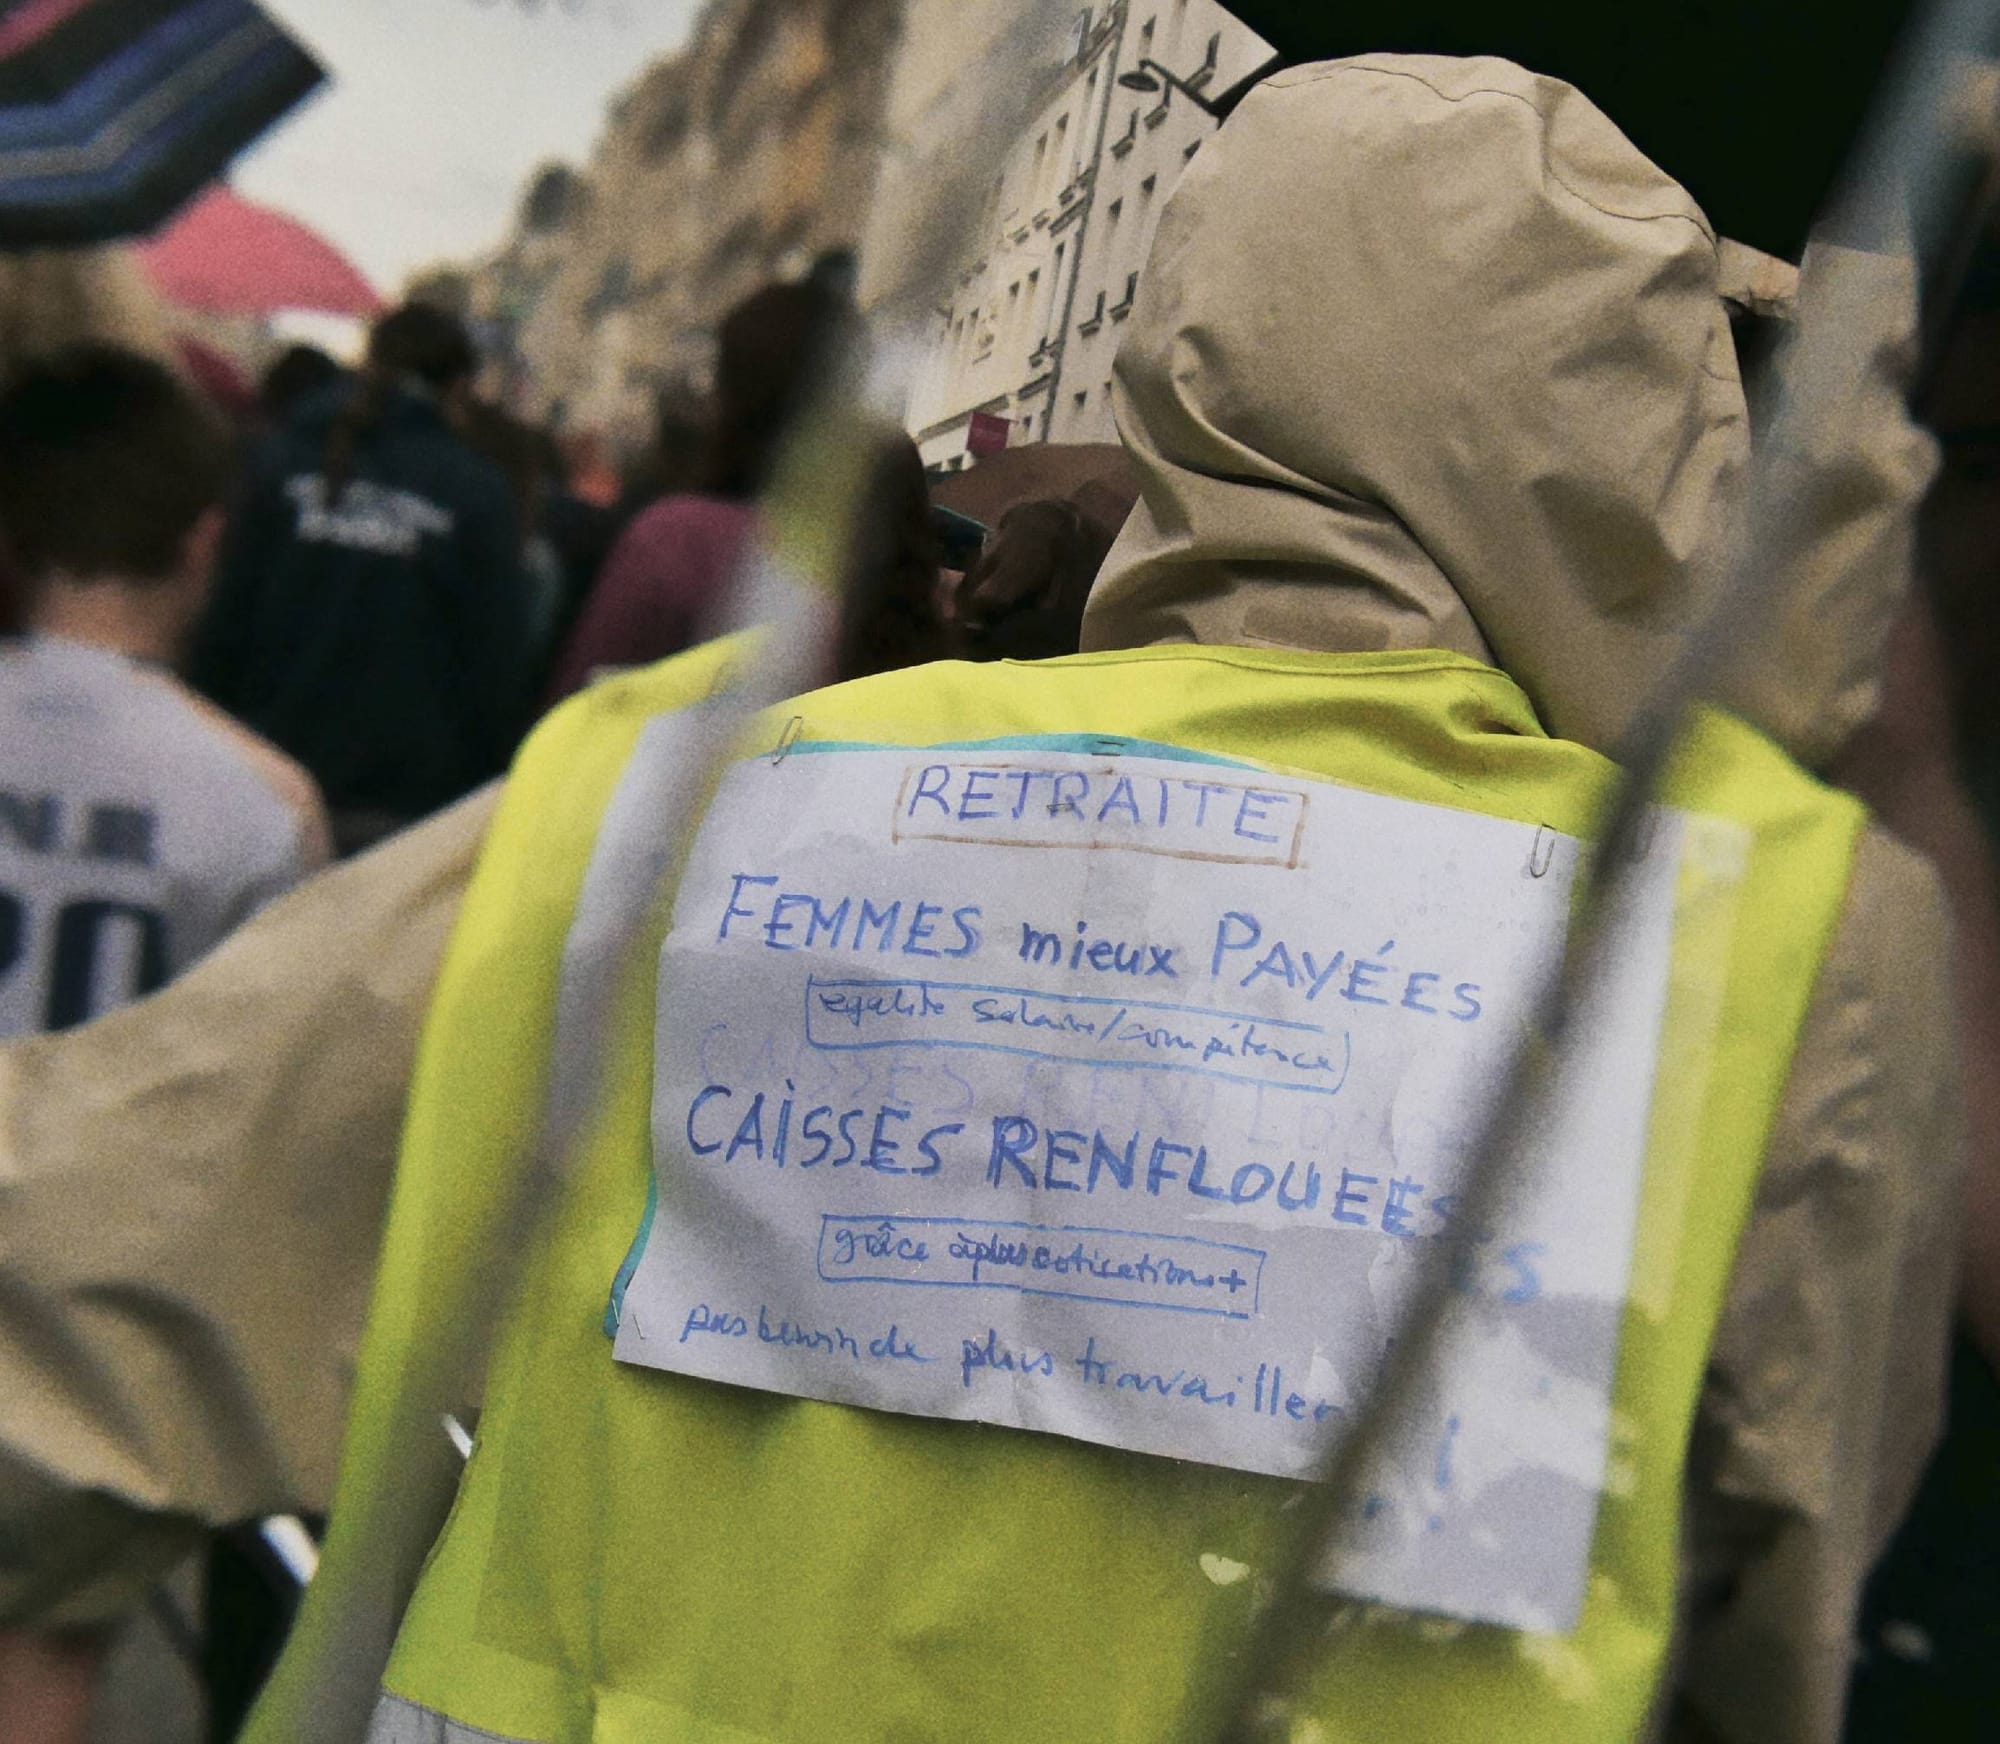 RETRAITE
FEMMES mieux PAYÉES
egalite salaire/compétence
CAISSES RENFLOUEES
grâce à plus cotisations+
pas besoin de plus travailler !